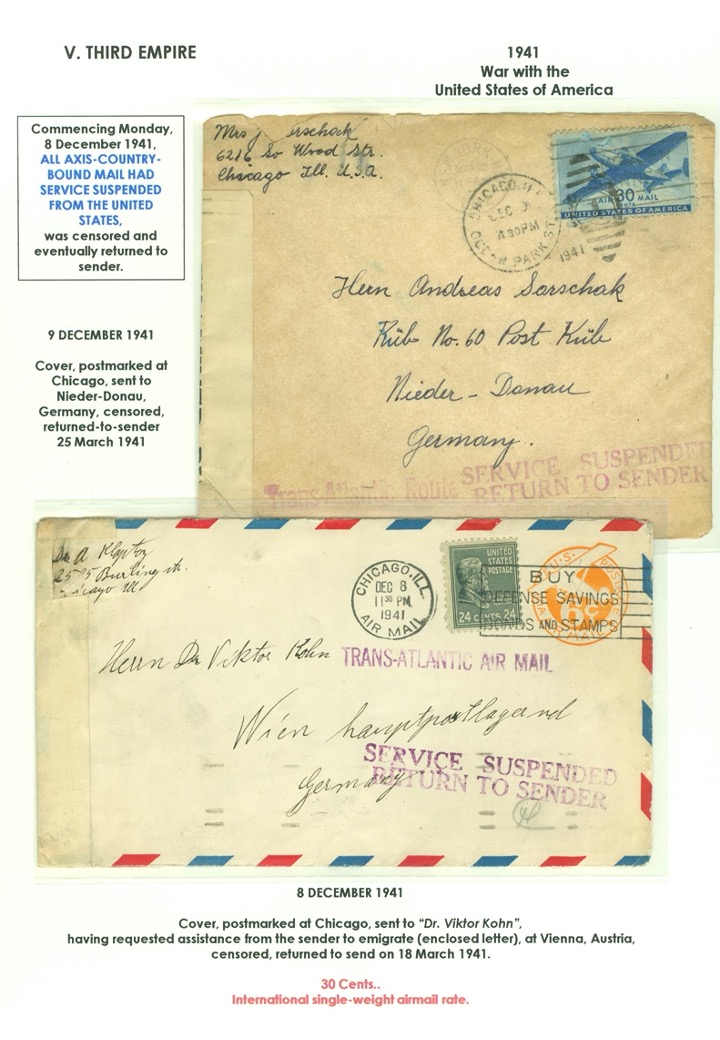 V. THIRD EMPIRE
1941
War with the
United States of America
Commencing Monday,
8 December 1941,
ALL AXIS-COUNTRY-
BOUND MAIL HAD
SERVICE SUSPENDED
FROM THE UNITED
STATES,
was censored and
eventually returned to
sender.
9 DECEMBER 1941
Cover, postmarked at
Chicago, sent to
Nieder-Donau,
Germany, censored,
returned-to-sender
25 March 1941
Mrs
6216 So Wood Str.
Chicago Ill. U.S.A.
CHICAGO, ILL.
DEC 9
430PM
PARK STA.
1941
AIR 30 MAIL
CENTS
UNITED STATES OF AMERICA
Herrn Andreas Sorschak
Küb No. 60 Post Küb
Nieder-Donau
Germany.
Trans-Atlantic Route
SERVICE SUSPENDED
RETURN TO SENDER
Dr. A
CHICAGO, ILL.
DEC 8
11 30 PM
1941
AIR MAIL
UNITED
STATES
POSTAGE
24 CENTS 24
U.S. POSTAGE
6¢
AIR MAIL
BUY
DEFENSE SAVINGS
BONDS AND STAMPS
Herrn Dr Viktor Kohn
TRANS-ATLANTIC AIR MAIL
Wien hauptpostlagernd
Germany
SERVICE SUSPENDED
RETURN TO SENDER
8 DECEMBER 1941
Cover, postmarked at Chicago, sent to "Dr. Viktor Kohn",
having requested assistance from the sender to emigrate (enclosed letter), at Vienna, Austria,
censored, returned to send on 18 March 1941.
30 Cents..
International single-weight airmail rate.